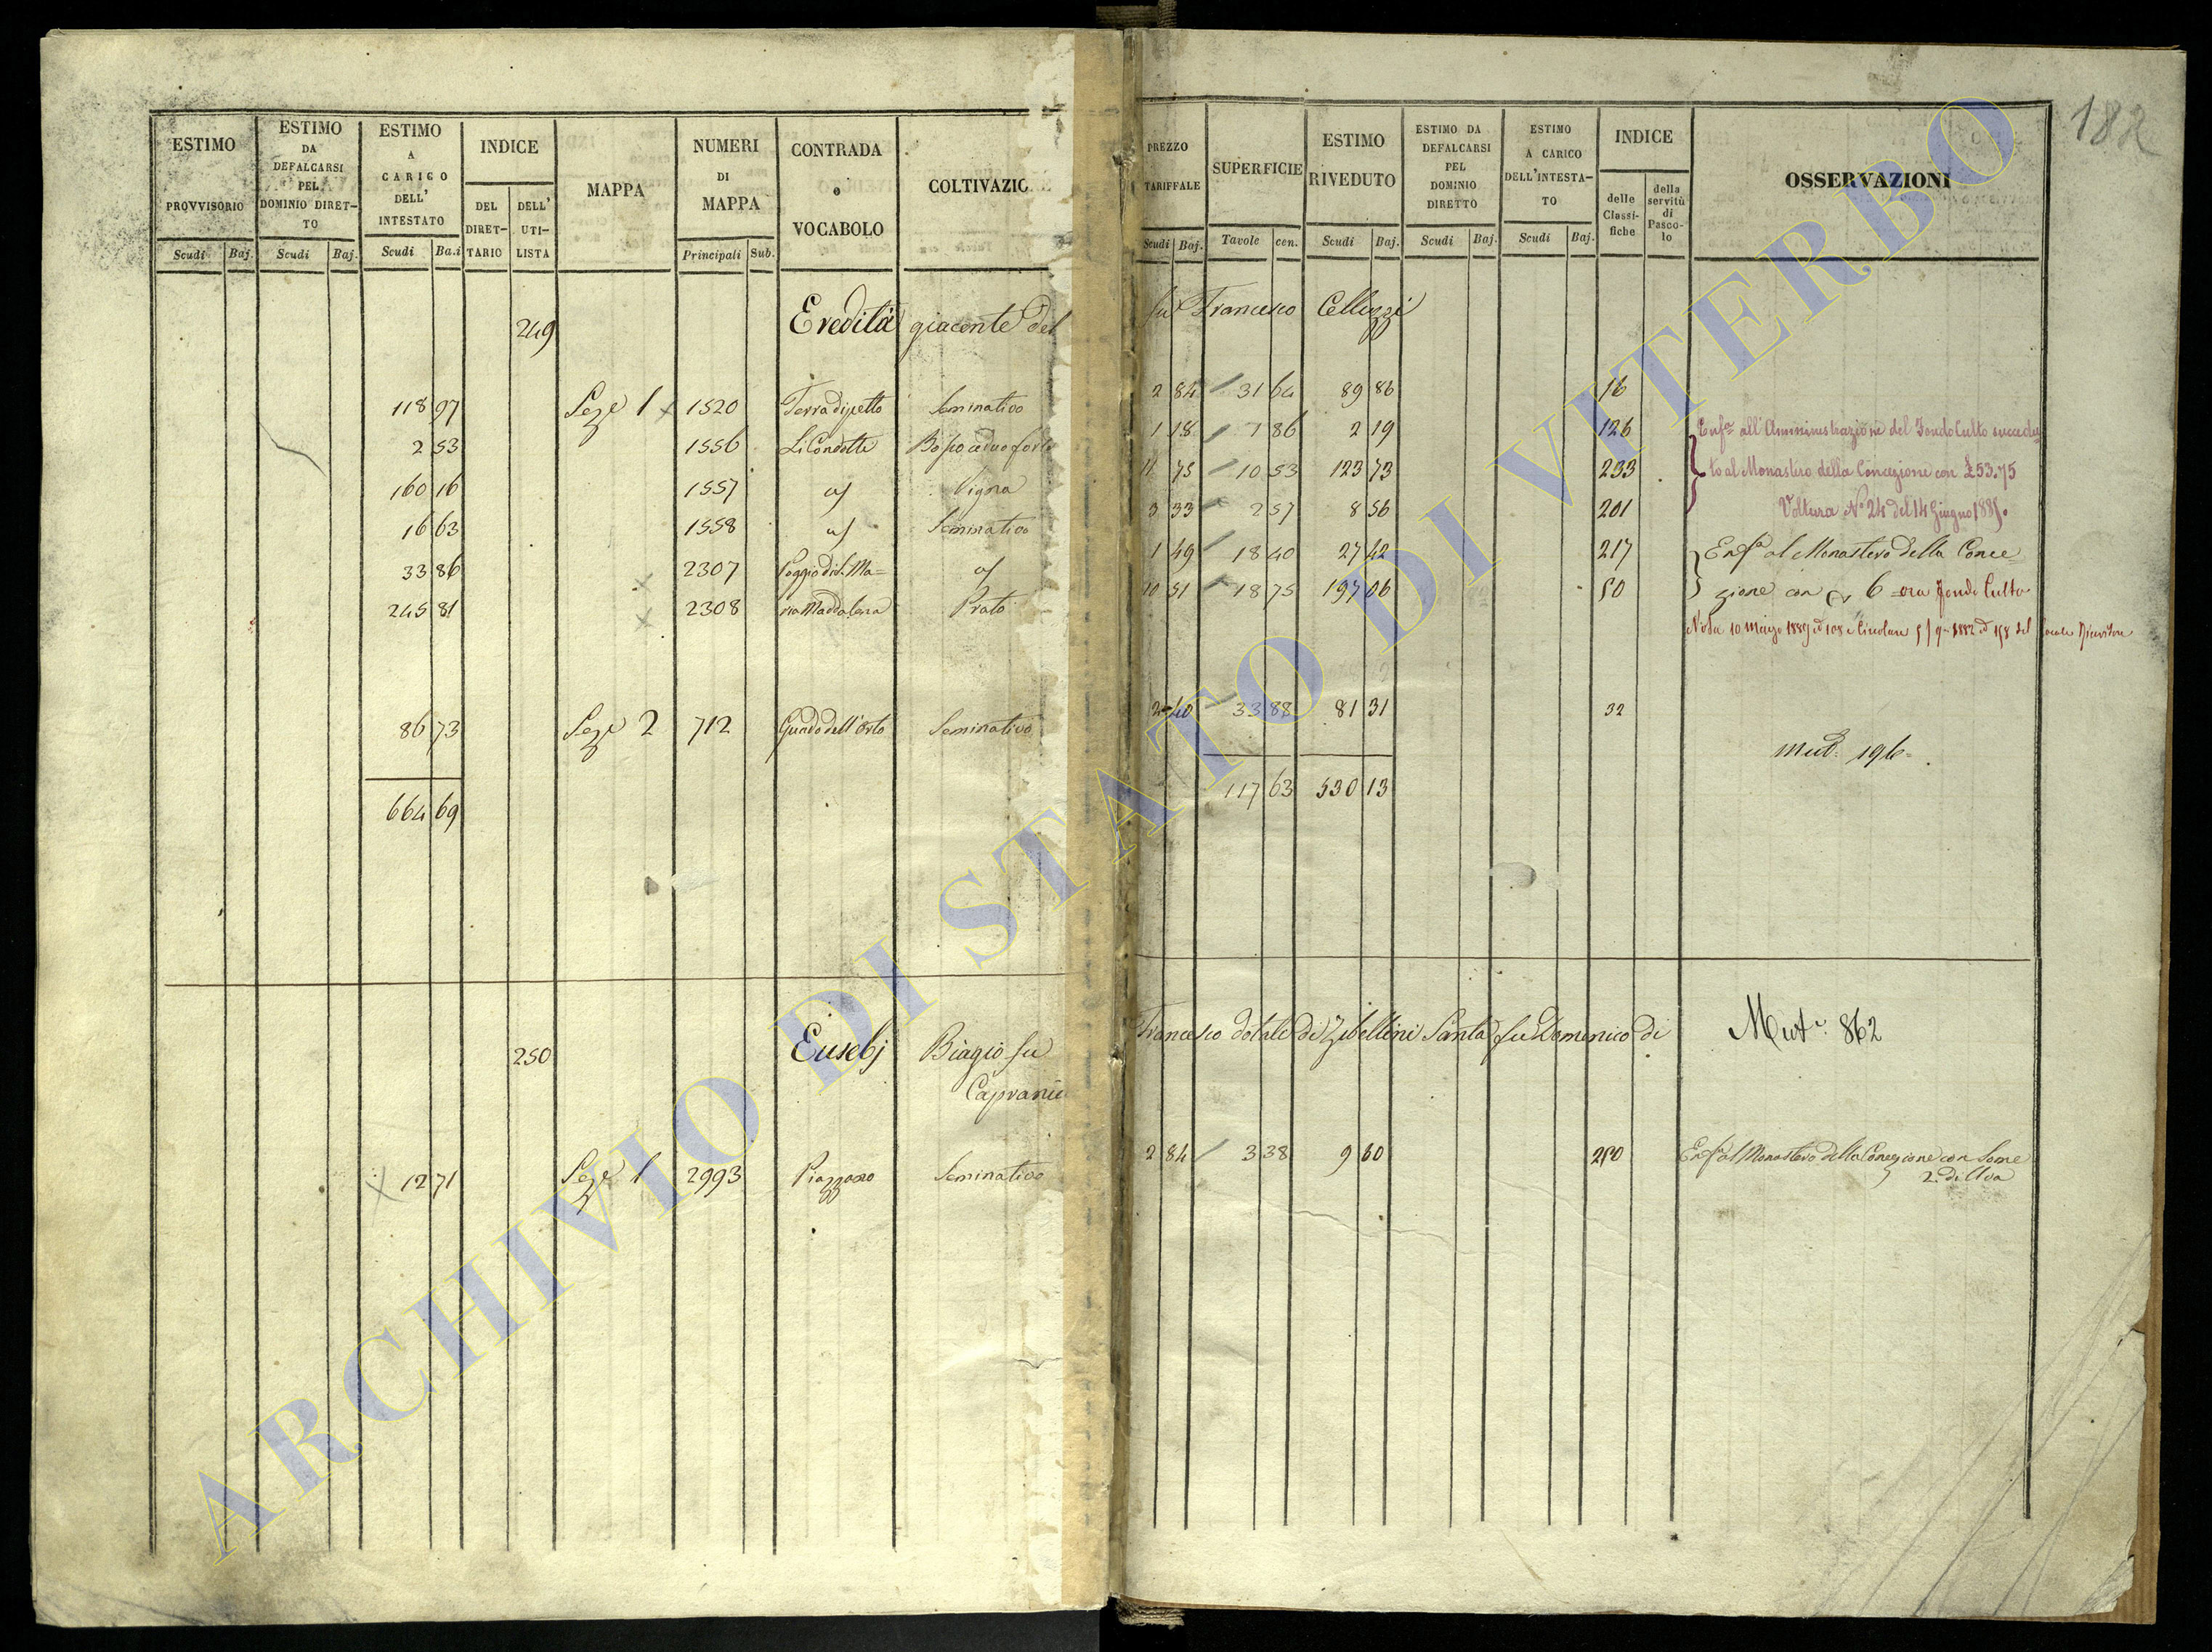 182
ESTIMO PROVVISORIO
ESTIMO DA DEFALCARSI PEL DOMINIO DIRETTO
ESTIMO A CARICO DELL' INTESTATO
INDICE
DEL DIRETTARIO
DELL' UTILISTA
MAPPA
NUMERI DI MAPPA
CONTRADA o VOCABOLO
COLTIVAZIO
PREZZO TARIFFALE
SUPERFICIE
ESTIMO RIVEDUTO
ESTIMO DA DEFALCARSI PEL DOMINIO DIRETTO
ESTIMO A CARICO DELL'INTESTATO
INDICE
delle Classifiche
della servitù di Pascolo
OSSERVAZIONI
Scudi Baj. Scudi Baj. Scudi Ba.i Principali Sub.
Scudi Baj. Tavole cen. Scudi Baj. Scudi Baj. Scudi Baj.
249 Eredità giacente del fu Francesco Celluzzi
118 97 Seze 1 1520 Terra di petto Seminativo 2 84 31 64 89 86 16
2 53 1556 Li Condotti Bosso ceduo forte 1 18 1 86 2 19 126
160 16 1557 Vigna 11 75 10 53 123 73 233
16 63 1558 Seminativo 3 33 2 57 8 56 201
33 86 2307 Poggio di S. Ma= 1 49 18 40 27 42 217
245 81 2308 ria Maddalena Prato 10 51 18 75 197 06 50
Enfa. all'Amministrazione del Fondo Culto succedu
to al Monastero della Concezione con £ 53.75
Voltura No 24 del 14 Giugno
Enfa. al Monastero della Conce=
zione con 6 = ora Fondo Culto
86 73 Seze 2 712 Guado dell'Orto Seminativo 2 40 33 88 81 31 32
Mut. 196=
664 69 117 63 530 13
250 Eusebj Biagio fu Francesco dotale di Zibellini Santa fu Domenico di
Caprani
Mut. 862
12 71 Seze 1 2993 Piazzano Seminativo 2 84 3 38 9 60 250
Enfa. al Monastero della Concezione con Some
2. di Uva
ARCHIVIO DI STATO DI VITERBO